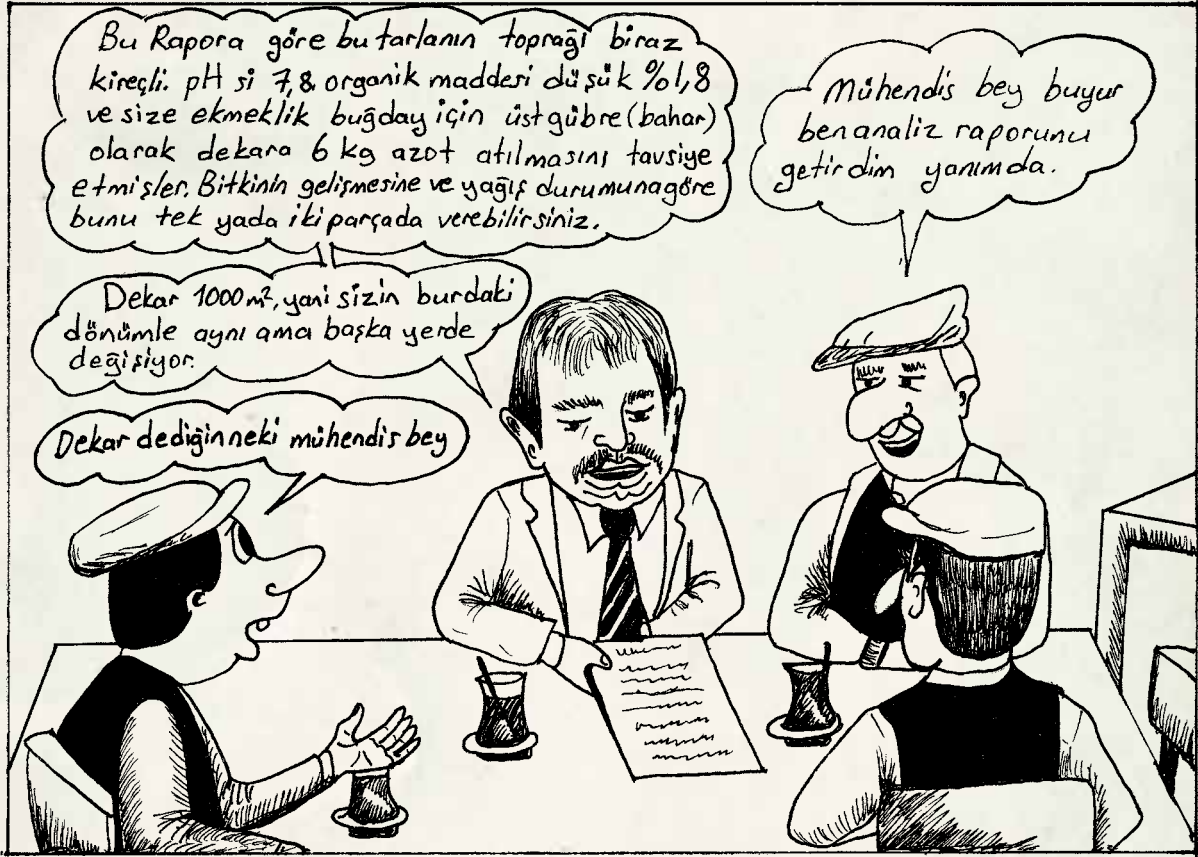 Bu Rapora göre bu tarlanın toprağı biraz
kireçli. pH si 7,8 organik maddesi düşük %1,8
ve size ekmeklik buğday için üst gübre (bahar)
olarak dekara 6 kg azot atılmasını tavsiye
etmişler. Bitkinin gelişmesine ve yağış durumuna göre
bunu tek yada iki parçada verebilirsiniz.
Mühendis bey buyur
ben analiz raporunu
getirdim yanımda.
Dekar 1000 m², yani sizin burdaki
dönümle aynı ama başka yerde
değişiyor.
Dekar dediğin neki mühendis bey